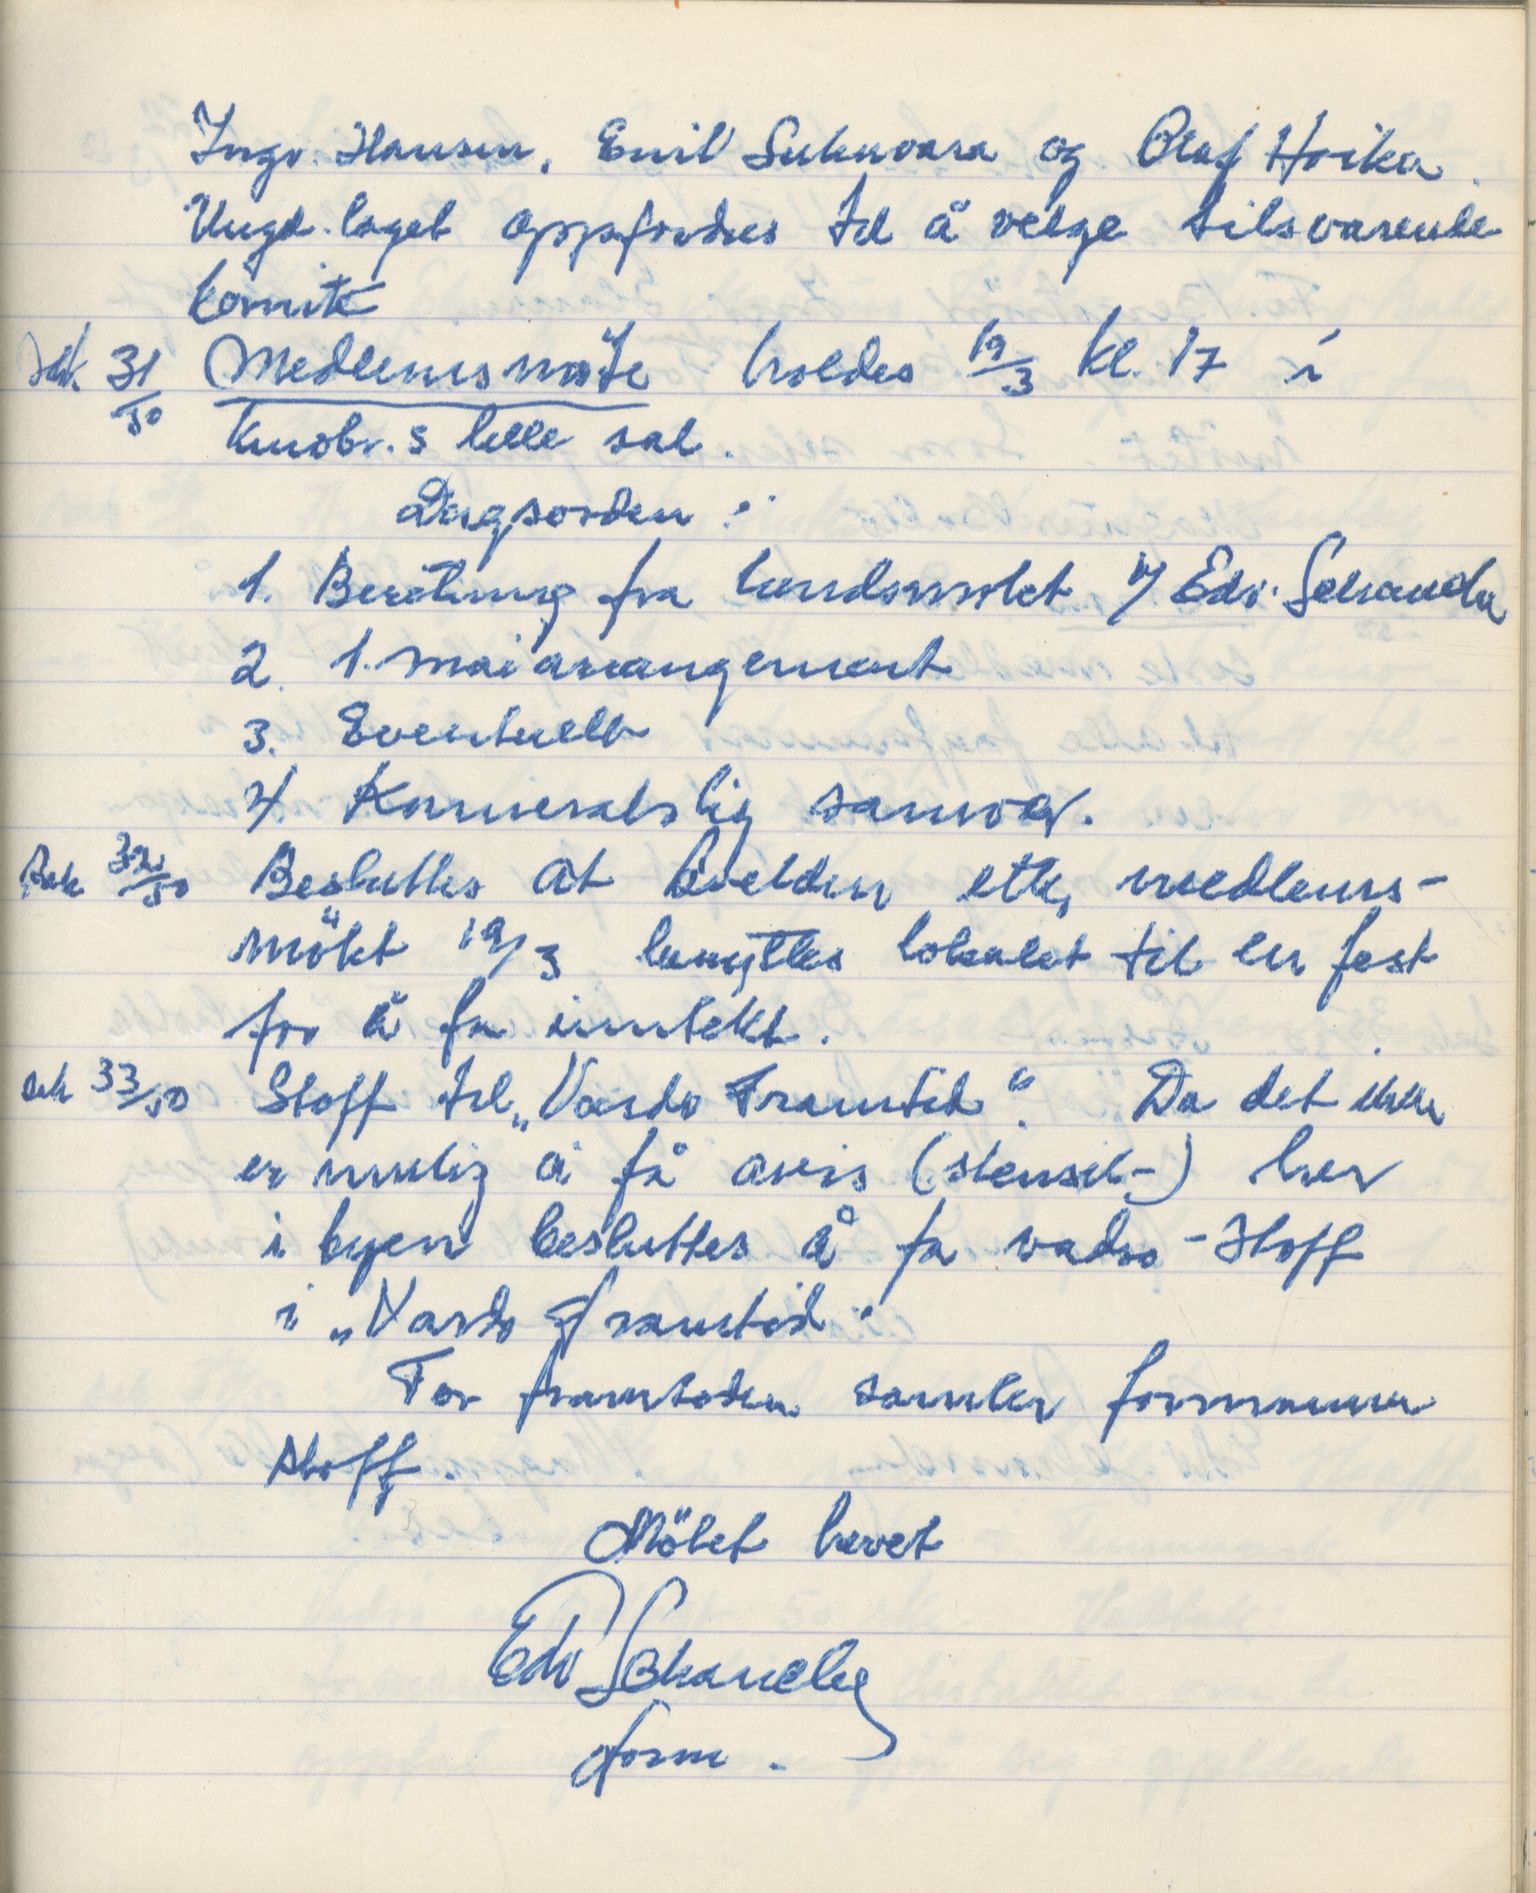 Ingv. Hansen, Emil Suhuvara og Olaf Hoika.
Ungd.laget oppfordres til å velge tilsvarende
komité
Sak 31/50 Medlemsmøte holdes 19/3 kl. 17 i
Kinobr.s lille sal.
Dagsorden:
1. Beretning fra landsmøtet v/ Edv. Schanche
2. 1. mai arrangement
3. Eventuelt
4 Kameratslig samvær.
Sak 32/50 Besluttes at kvelden etter medlems-
mötet 19/3 benyttes lokalet til en fest
for å få inntekt.
Sak 33/50 Stoff til „Vardø Framtid“. Da det ikke
er mulig å få avis (stensil-) her
i byen besluttes å få vadsø-stoff
i „Vardø framtid.
For framtiden samler formannen
stoff.
Mötet hevet
Edv Schanche
form.